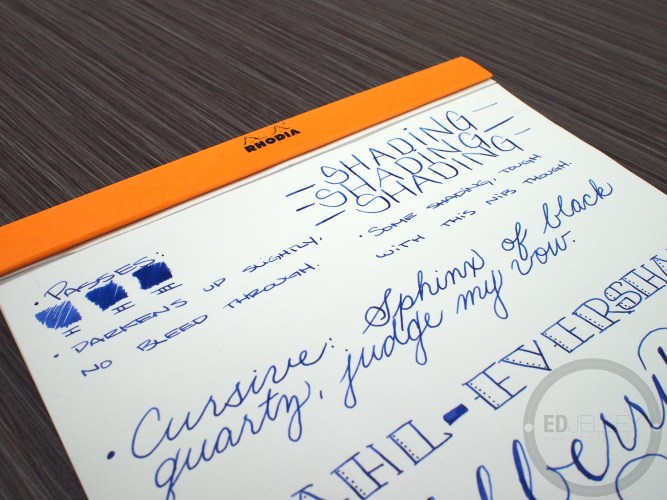 RHODIA
SHADING
SHADING
SHADING
· SOME SHADING, TOUGH
WITH THIS NIB THOUGH.
· PASSES:
I II III
· DARKENS UP SLIGHTLY.
NO BLEED THROUGH.
· Cursive: Sphinx of black
quartz, judge my vow.
AHL-EVERSHA
lberry
EDJELLEY